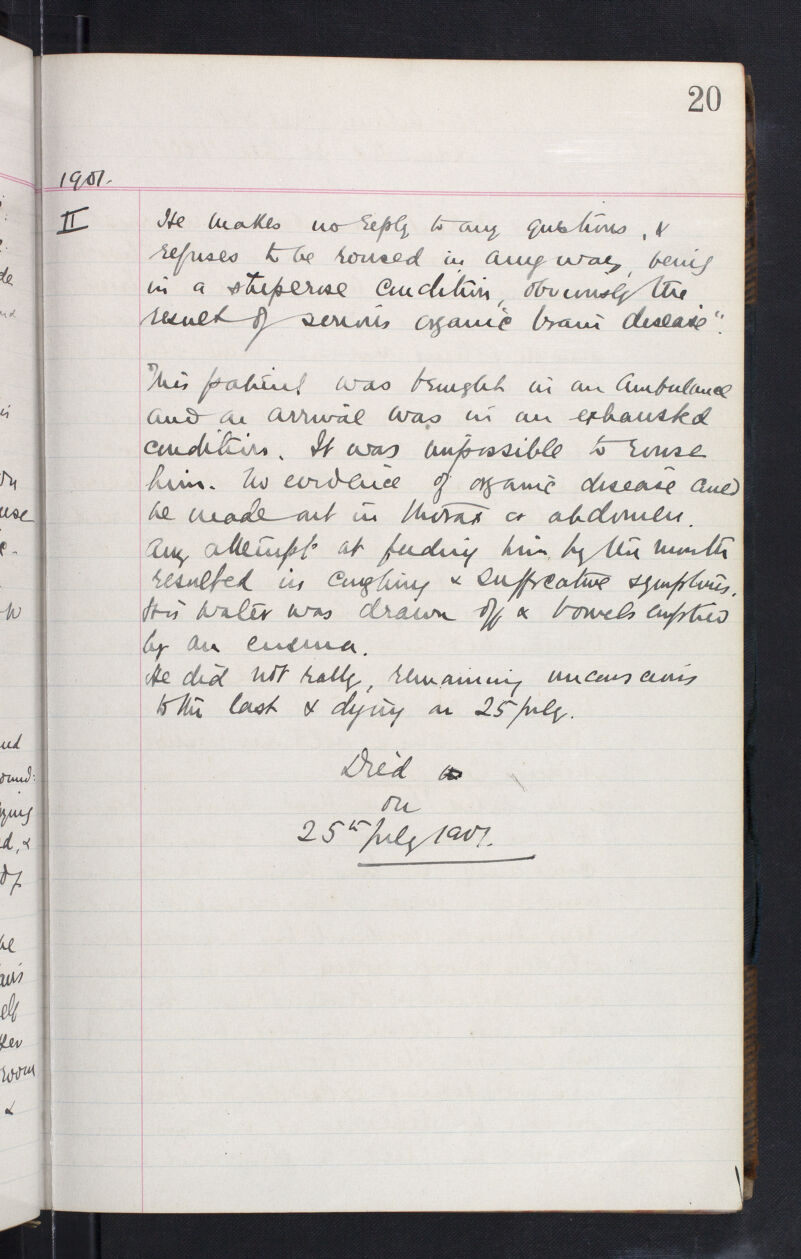 20
1901.
II He makes no reply to any questions, &
refuses to be roused in any way, being
in a stuperose condition, obviously the
result of serious organic brain disease".
This patient was brought in an Ambulance
and on arrival was in an exhausted
condition. It was impossible to rouse
him. No evidence of organic disease could
be made out in thorax or abdomen.
Any attempt at feeding him by the mouth
resulted in coughing & suffocative symptoms.
His water was drawn off & bowels emptied
by an enema.
He did not rally, remaining unconscious
to the last & dying on 25 July.
Died
on
25th July 1901.